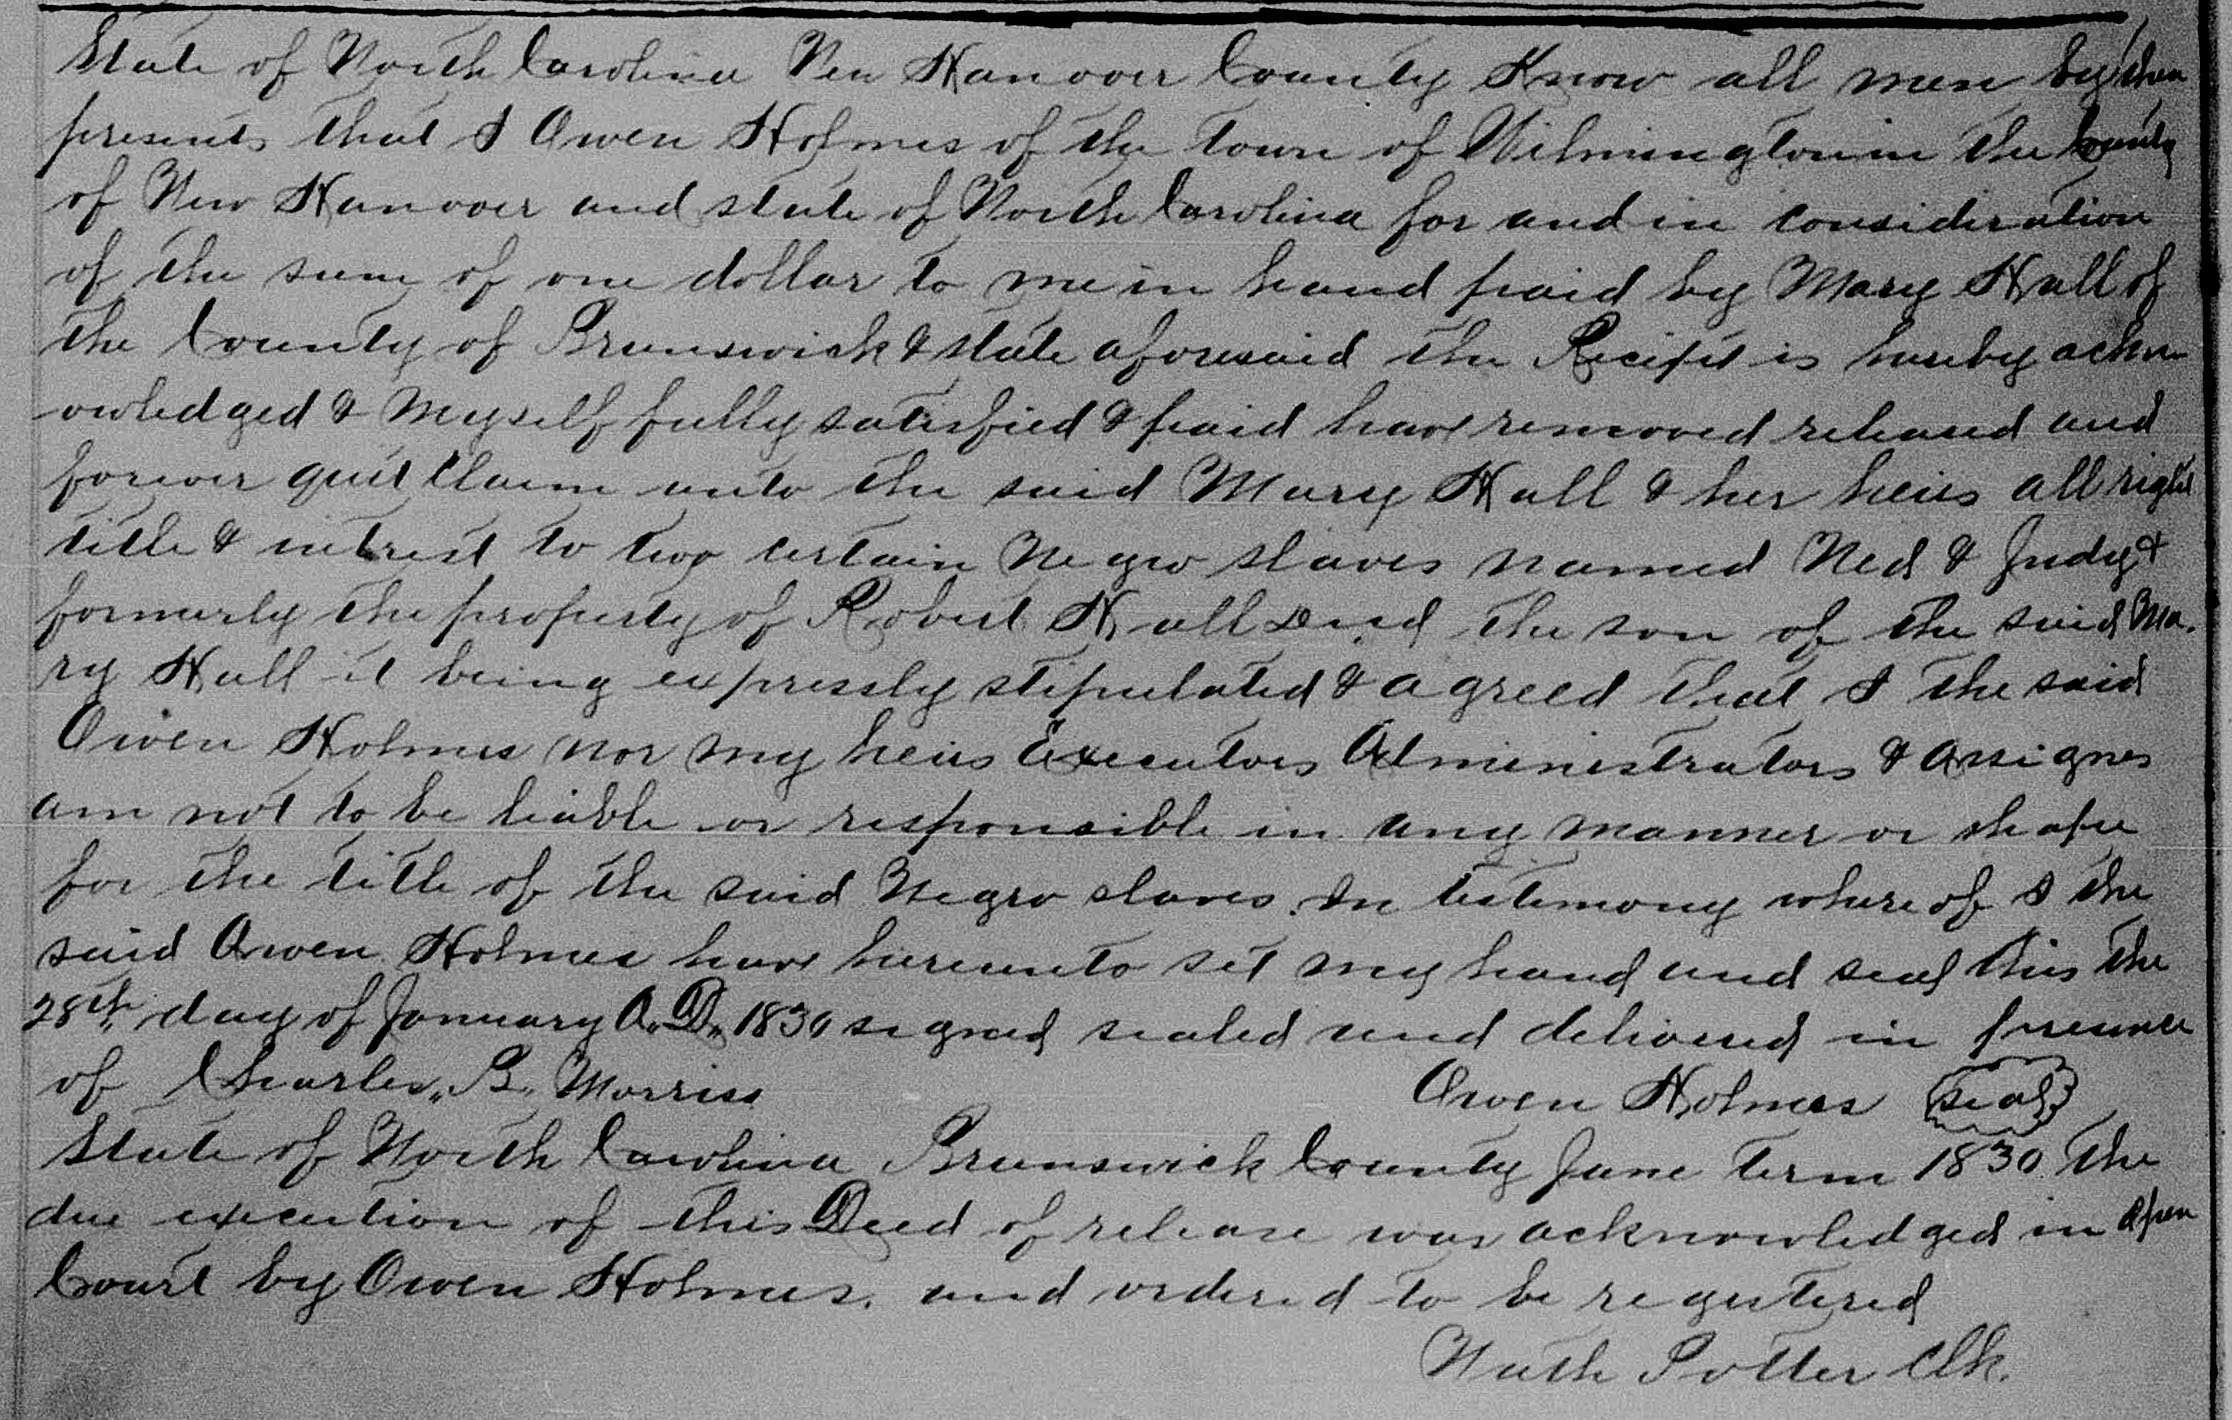 State of North Carolina New Hanover County Know all men by these
presents that I Owen Holmes of the town of Wilmington in the County
of New Hanover and state of North Carolina for and in consideration
of the sum of one dollar to me in hand paid by Mary Hall of
the County of Brunswick & state aforesaid the Recipt is hereby ackn
owledged & Myself fully satisfied & paid have removed released and
forever quit Claim unto the said Mary Hall & her heirs all right
title & intrest to two certain Negro slaves named Ned & Judy &
formerly the property of Robert Hall Decd the son of the said Ma.
ry Hall it being expressly stipulated & agreed that I the said
Owen Holmes nor my heirs Executors Administrators & assignes
am not to be liable or responsible in any manner or shape
for the title of the said Negro slaves. In testimony where of I the
said Owen Holmes have hereunto set my hand and seal this the
28th day of January A.D. 1830 signed sealed and delivered in presence
of Charles B. Morriss Owen Holmes seal
State of North Carolina Brunswick County June term 1830 The
due execution of this Deed of release was acknowledged in open
Court by Owen Holmes. and ordered to be registered
Nath Potter Clk.